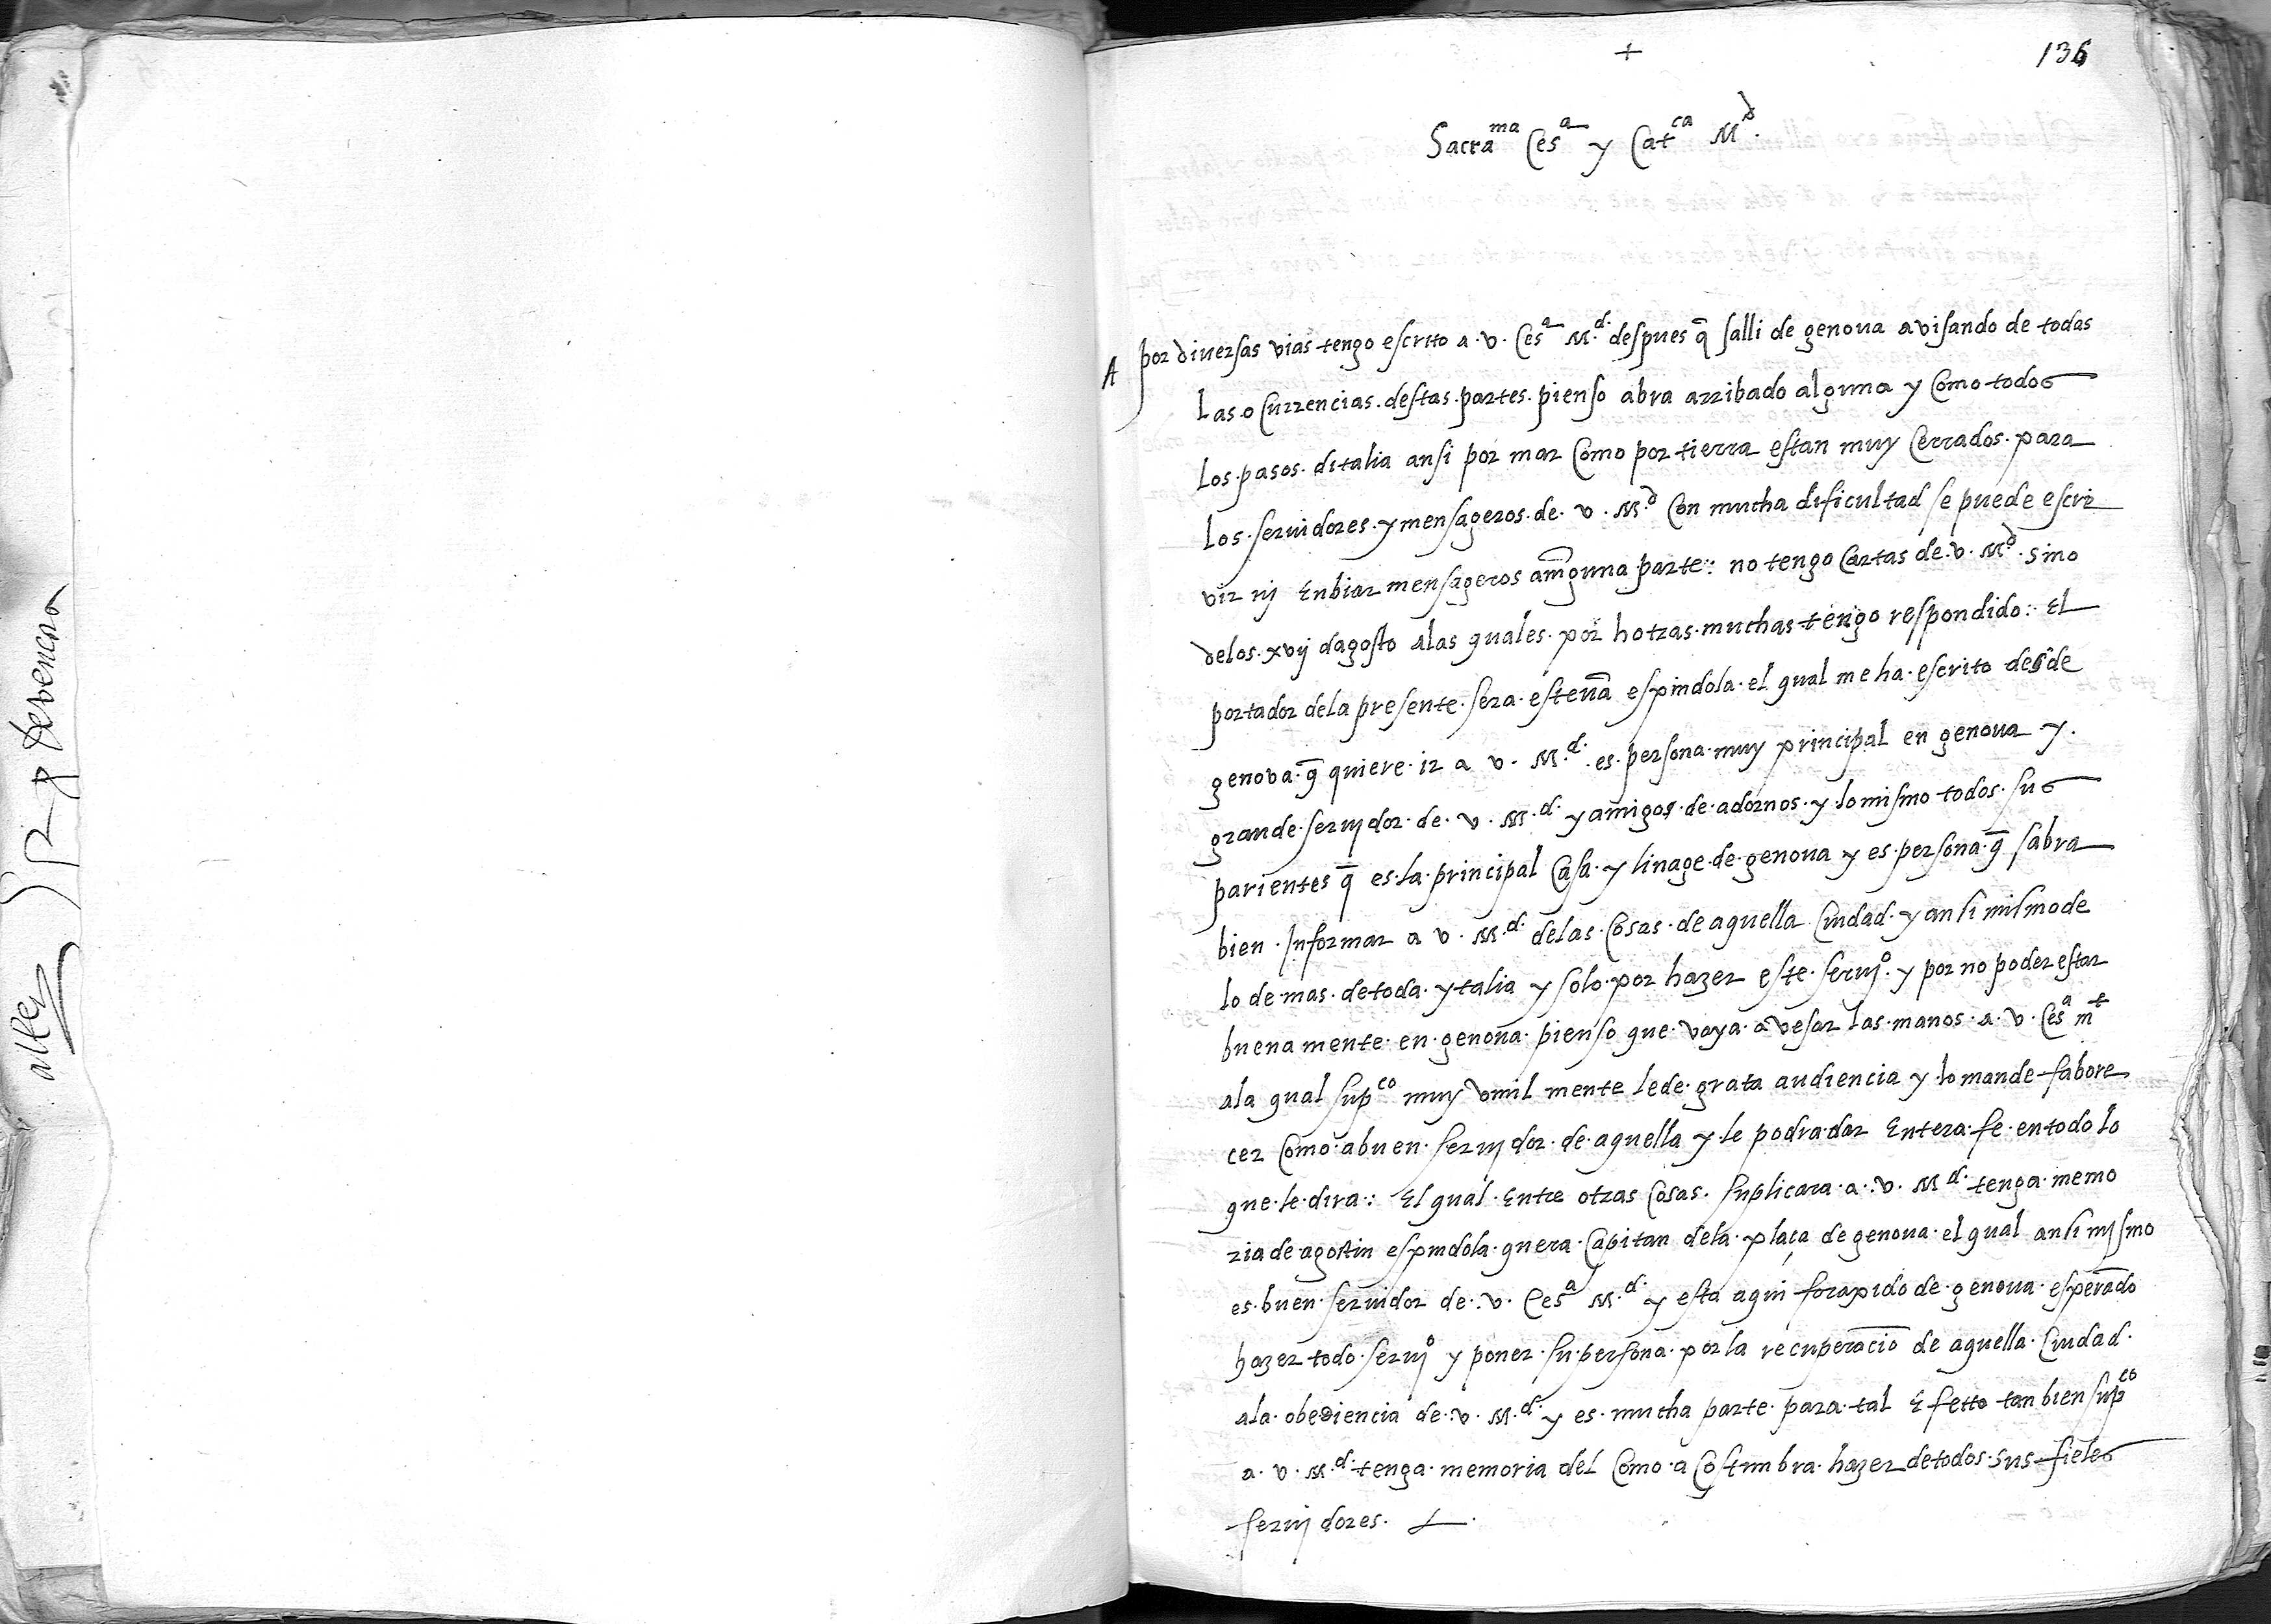 +
136
Sacra^ma Ces^a y Cat^ca M^d.
A por diuersas vias tengo escrito a. v. Ces^a M.^d. despues q̄ salli de genoua avisando de todas
las. ocurrencias. destas. partes. pienso abra arribado alguna y Como todos
los. pasos. ditalia ansi por mar Como por tierra estan muy Cerrados. para
los. seruidores. y mensageros. de. v. M.^d Con mucha dificultad se puede escri
vir nj Enbiar mensageros a nīguna parte: no tengo Cartas de. v. M^d. sino
delos. xvij dagosto alas quales. por hotras. muchas tengo respondido: El
portador dela presente. sera. esteuā espindola. el qual me ha. escrito desde
genova. q̄ quiere. ir a v. M.^d. es. persona. muy principal en genoua y.
grande. serujdor. de. v. M.^d. y amigos. de. adornos. y. lo mismo todos. sus
parientes q̄ es. la. principal Casa. y linage. de. genoua y es. persona. q̄ sabra
bien. Informar a v. M.^d. delas. Cosas. de aquella Ciudad. y ansi mismo de
lo de mas. de toda. ytalia y solo. por hazer este. seruj^o. y por no poder estar
buena mente. en. genoua. pienso que. vaya. a vesar las. manos. a. v. Ces^a m^t
ala qual sup^co muy vmil mente le de. grata audiencia y lo mande fabore
cer Como. a buen. serujdor. de. aquella y. le podra. dar Entera. fe. en todo lo
que. le. dira: El qual. Entre otras Cosas. suplicara. a. v. M^d. tenga. memo
ria de agostin espindola. que era. Capitan dela. plaça de genoua. el qual ansi mjsmo
es. buen. seruidor de. v. Ces^a M.^d. y esta aqui foraxido de. genoua. esperādo
hazer todo. seruj^o y poner. su. persona. por la recuperaciō de aquella. Ciudad.
ala. obediencia de. v. M.^d. y es. mucha parte. para. tal Efetto tan bien sup^co
a. v. M.^d. tenga. memoria del Como. a Costumbra. hazer de todos. sus. fieles
serujdores.